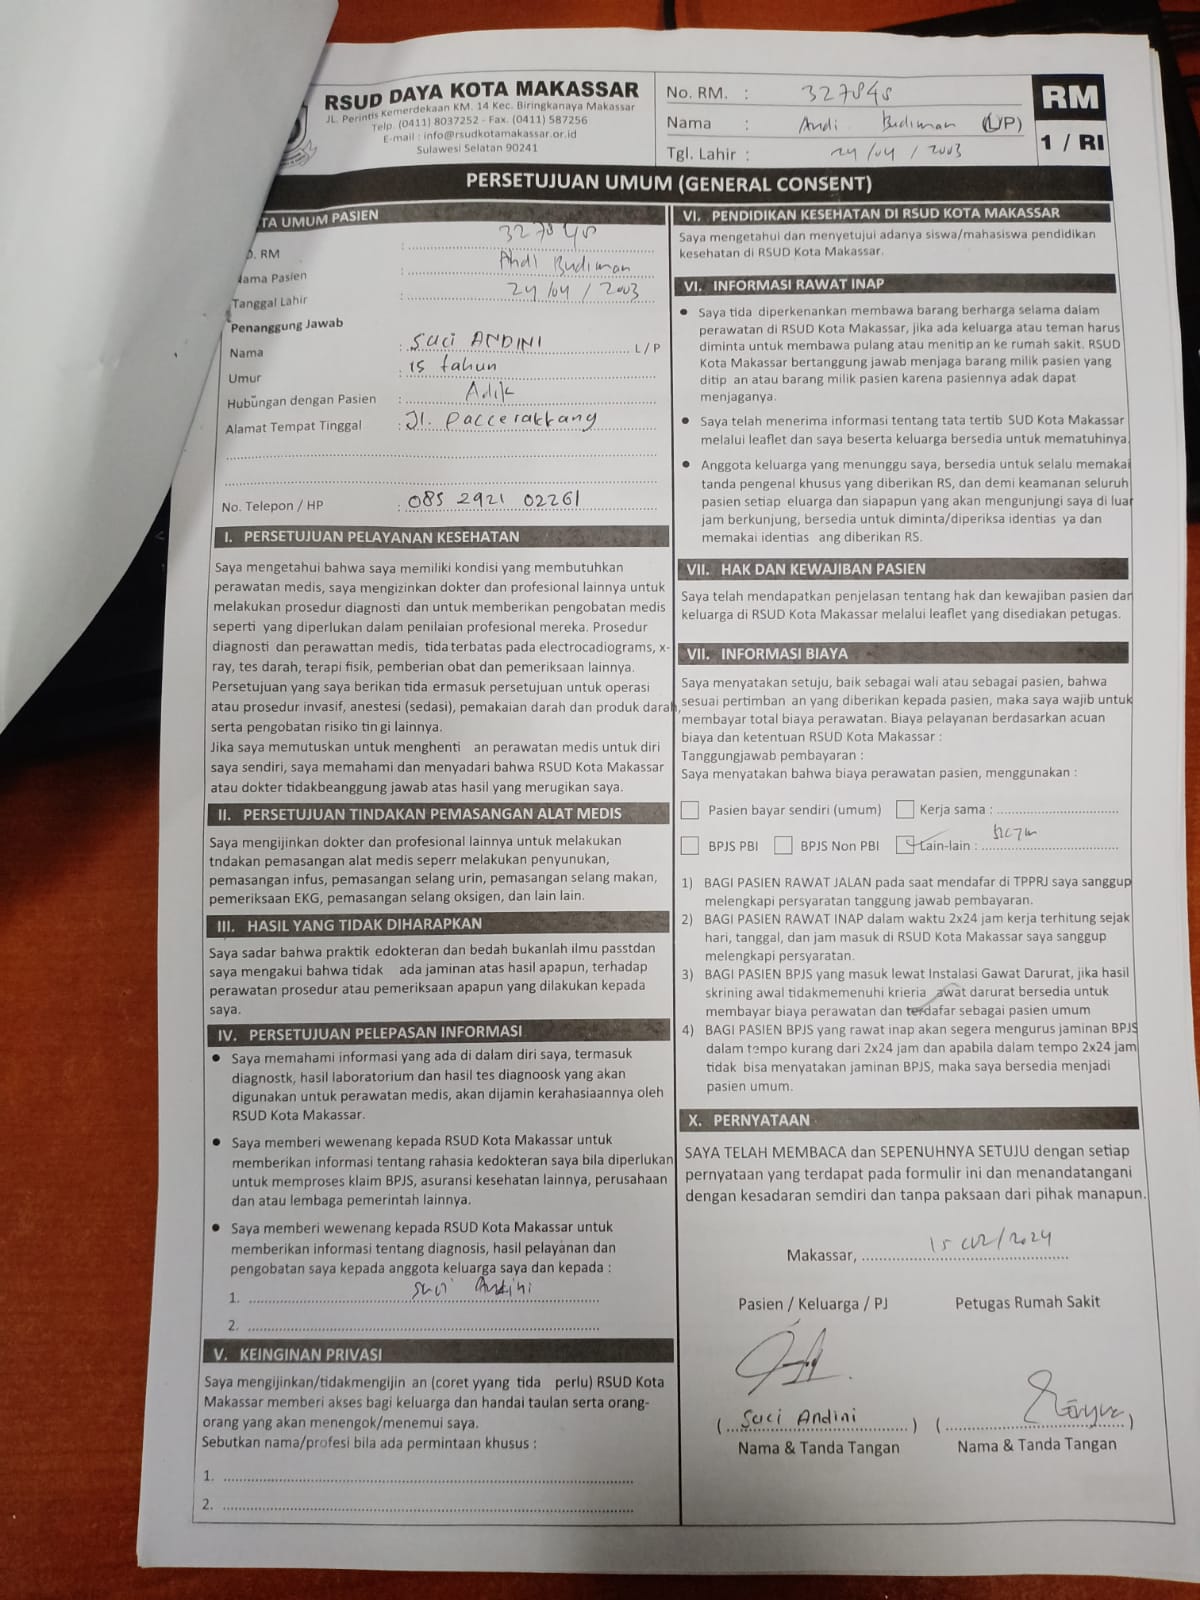 RSUD DAYA KOTA MAKASSAR
JL. Perintis Kemerdekaan KM. 14 Kec. Biringkanaya Makassar
Telp. (0411) 8037252 - Fax. (0411) 587256
E-mail : info@rsudkotamakassar.or.id
Sulawesi Selatan 90241
No. RM. : 327848
Nama : Andi Budiman (L/P)
Tgl. Lahir : 24/04/2003
RM
1 / RI
PERSETUJUAN UMUM (GENERAL CONSENT)
TA UMUM PASIEN
. RM : 327848
ama Pasien : Andi Budiman
Tanggal Lahir : 24/04/2003
Penanggung Jawab
Nama : Suci ANDINI L/P
Umur : 15 tahun
Hubungan dengan Pasien : Adik
Alamat Tempat Tinggal : Jl. Paccerakkang
No. Telepon / HP : 085 2921 02261
I. PERSETUJUAN PELAYANAN KESEHATAN
Saya mengetahui bahwa saya memiliki kondisi yang membutuhkan
perawatan medis, saya mengizinkan dokter dan profesional lainnya untuk
melakukan prosedur diagnosti dan untuk memberikan pengobatan medis
seperti yang diperlukan dalam penilaian profesional mereka. Prosedur
diagnosti dan perawattan medis, tida terbatas pada electrocadiograms, x-
ray, tes darah, terapi fisik, pemberian obat dan pemeriksaan lainnya.
Persetujuan yang saya berikan tida ermasuk persetujuan untuk operasi
atau prosedur invasif, anestesi (sedasi), pemakaian darah dan produk darah,
serta pengobatan risiko tin gi lainnya.
Jika saya memutuskan untuk menghenti an perawatan medis untuk diri
saya sendiri, saya memahami dan menyadari bahwa RSUD Kota Makassar
atau dokter tidakbeanggung jawab atas hasil yang merugikan saya.
II. PERSETUJUAN TINDAKAN PEMASANGAN ALAT MEDIS
Saya mengijinkan dokter dan profesional lainnya untuk melakukan
tndakan pemasangan alat medis seperr melakukan penyunukan,
pemasangan infus, pemasangan selang urin, pemasangan selang makan,
pemeriksaan EKG, pemasangan selang oksigen, dan lain lain.
III. HASIL YANG TIDAK DIHARAPKAN
Saya sadar bahwa praktik edokteran dan bedah bukanlah ilmu passtdan
saya mengakui bahwa tidak ada jaminan atas hasil apapun, terhadap
perawatan prosedur atau pemeriksaan apapun yang dilakukan kepada
saya.
IV. PERSETUJUAN PELEPASAN INFORMASI
• Saya memahami informasi yang ada di dalam diri saya, termasuk
diagnostk, hasil laboratorium dan hasil tes diagnoosk yang akan
digunakan untuk perawatan medis, akan dijamin kerahasiaannya oleh
RSUD Kota Makassar.
• Saya memberi wewenang kepada RSUD Kota Makassar untuk
memberikan informasi tentang rahasia kedokteran saya bila diperlukan
untuk memproses klaim BPJS, asuransi kesehatan lainnya, perusahaan
dan atau lembaga pemerintah lainnya.
• Saya memberi wewenang kepada RSUD Kota Makassar untuk
memberikan informasi tentang diagnosis, hasil pelayanan dan
pengobatan saya kepada anggota keluarga saya dan kepada :
1. Suci Andini
2.
V. KEINGINAN PRIVASI
Saya mengijinkan/tidakmengijin an (coret yyang tida perlu) RSUD Kota
Makassar memberi akses bagi keluarga dan handai taulan serta orang-
orang yang akan menengok/menemui saya.
Sebutkan nama/profesi bila ada permintaan khusus :
1.
2.
VI. PENDIDIKAN KESEHATAN DI RSUD KOTA MAKASSAR
Saya mengetahui dan menyetujui adanya siswa/mahasiswa pendidikan
kesehatan di RSUD Kota Makassar.
VI. INFORMASI RAWAT INAP
• Saya tida diperkenankan membawa barang berharga selama dalam
perawatan di RSUD Kota Makassar, jika ada keluarga atau teman harus
diminta untuk membawa pulang atau menitip an ke rumah sakit. RSUD
Kota Makassar bertanggung jawab menjaga barang milik pasien yang
ditip an atau barang milik pasien karena pasiennya adak dapat
menjaganya.
• Saya telah menerima informasi tentang tata tertib SUD Kota Makassar
melalui leaflet dan saya beserta keluarga bersedia untuk mematuhinya
• Anggota keluarga yang menunggu saya, bersedia untuk selalu memakai
tanda pengenal khusus yang diberikan RS, dan demi keamanan seluruh
pasien setiap eluarga dan siapapun yang akan mengunjungi saya di luar
jam berkunjung, bersedia untuk diminta/diperiksa identias ya dan
memakai identias ang diberikan RS.
VII. HAK DAN KEWAJIBAN PASIEN
Saya telah mendapatkan penjelasan tentang hak dan kewajiban pasien dan
keluarga di RSUD Kota Makassar melalui leaflet yang disediakan petugas.
VII. INFORMASI BIAYA
Saya menyatakan setuju, baik sebagai wali atau sebagai pasien, bahwa
sesuai pertimban an yang diberikan kepada pasien, maka saya wajib untuk
membayar total biaya perawatan. Biaya pelayanan berdasarkan acuan
biaya dan ketentuan RSUD Kota Makassar :
Tanggungjawab pembayaran :
Saya menyatakan bahwa biaya perawatan pasien, menggunakan :
Pasien bayar sendiri (umum) Kerja sama :
BPJS PBI BPJS Non PBI Lain-lain :
1) BAGI PASIEN RAWAT JALAN pada saat mendafar di TPPRJ saya sanggup
melengkapi persyaratan tanggung jawab pembayaran.
2) BAGI PASIEN RAWAT INAP dalam waktu 2x24 jam kerja terhitung sejak
hari, tanggal, dan jam masuk di RSUD Kota Makassar saya sanggup
melengkapi persyaratan.
3) BAGI PASIEN BPJS yang masuk lewat Instalasi Gawat Darurat, jika hasil
skrining awal tidakmemenuhi krieria awat darurat bersedia untuk
membayar biaya perawatan dan terdafar sebagai pasien umum
4) BAGI PASIEN BPJS yang rawat inap akan segera mengurus jaminan BPJS
dalam tempo kurang dari 2x24 jam dan apabila dalam tempo 2x24 jam
tidak bisa menyatakan jaminan BPJS, maka saya bersedia menjadi
pasien umum.
X. PERNYATAAN
SAYA TELAH MEMBACA dan SEPENUHNYA SETUJU dengan setiap
pernyataan yang terdapat pada formulir ini dan menandatangani
dengan kesadaran semdiri dan tanpa paksaan dari pihak manapun.
Makassar, 15 /2024
Pasien / Keluarga / PJ Petugas Rumah Sakit
( Suci Andini ) ( )
Nama & Tanda Tangan Nama & Tanda Tangan